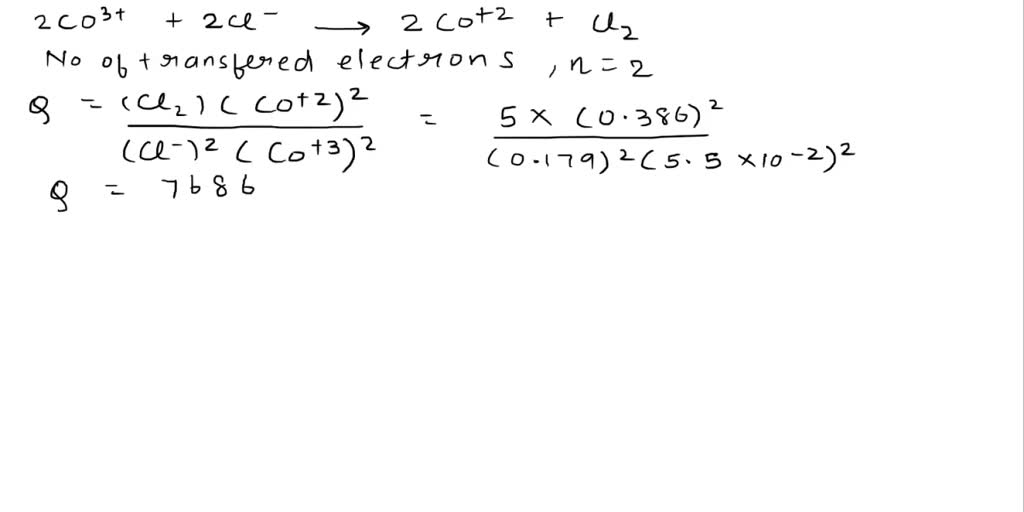 2CO³⁺ + 2Cl⁻ ⟶ 2CO⁺² + Cl₂
No of transfered electrons , n = 2
Q = (Cl₂) (CO⁺²)² / (Cl⁻)² (CO⁺³)² = 5 × (0.386)² / (0.179)² (5.5 ×10⁻²)²
Q = 7686